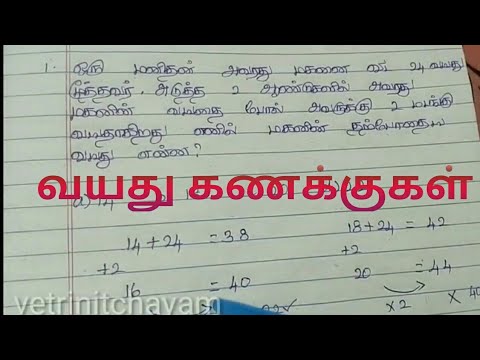 1. ஒரு மனிதன் அவரது மகனை விட 24 வயது
மூத்தவர். அடுத்த 2 ஆண்டுகளில் அவரது
மகனின் வயதை போல் அவருக்கு 2 மடங்கு
வயதாகிறது எனில் மகனின் தற்போதைய
வயது என்ன?
வயது கணக்குகள்
a) 14
14 + 24 = 38
+2
16 = 40
18 + 24 = 42
+2
20 = 44
×2 × 40
vetrinitchayam